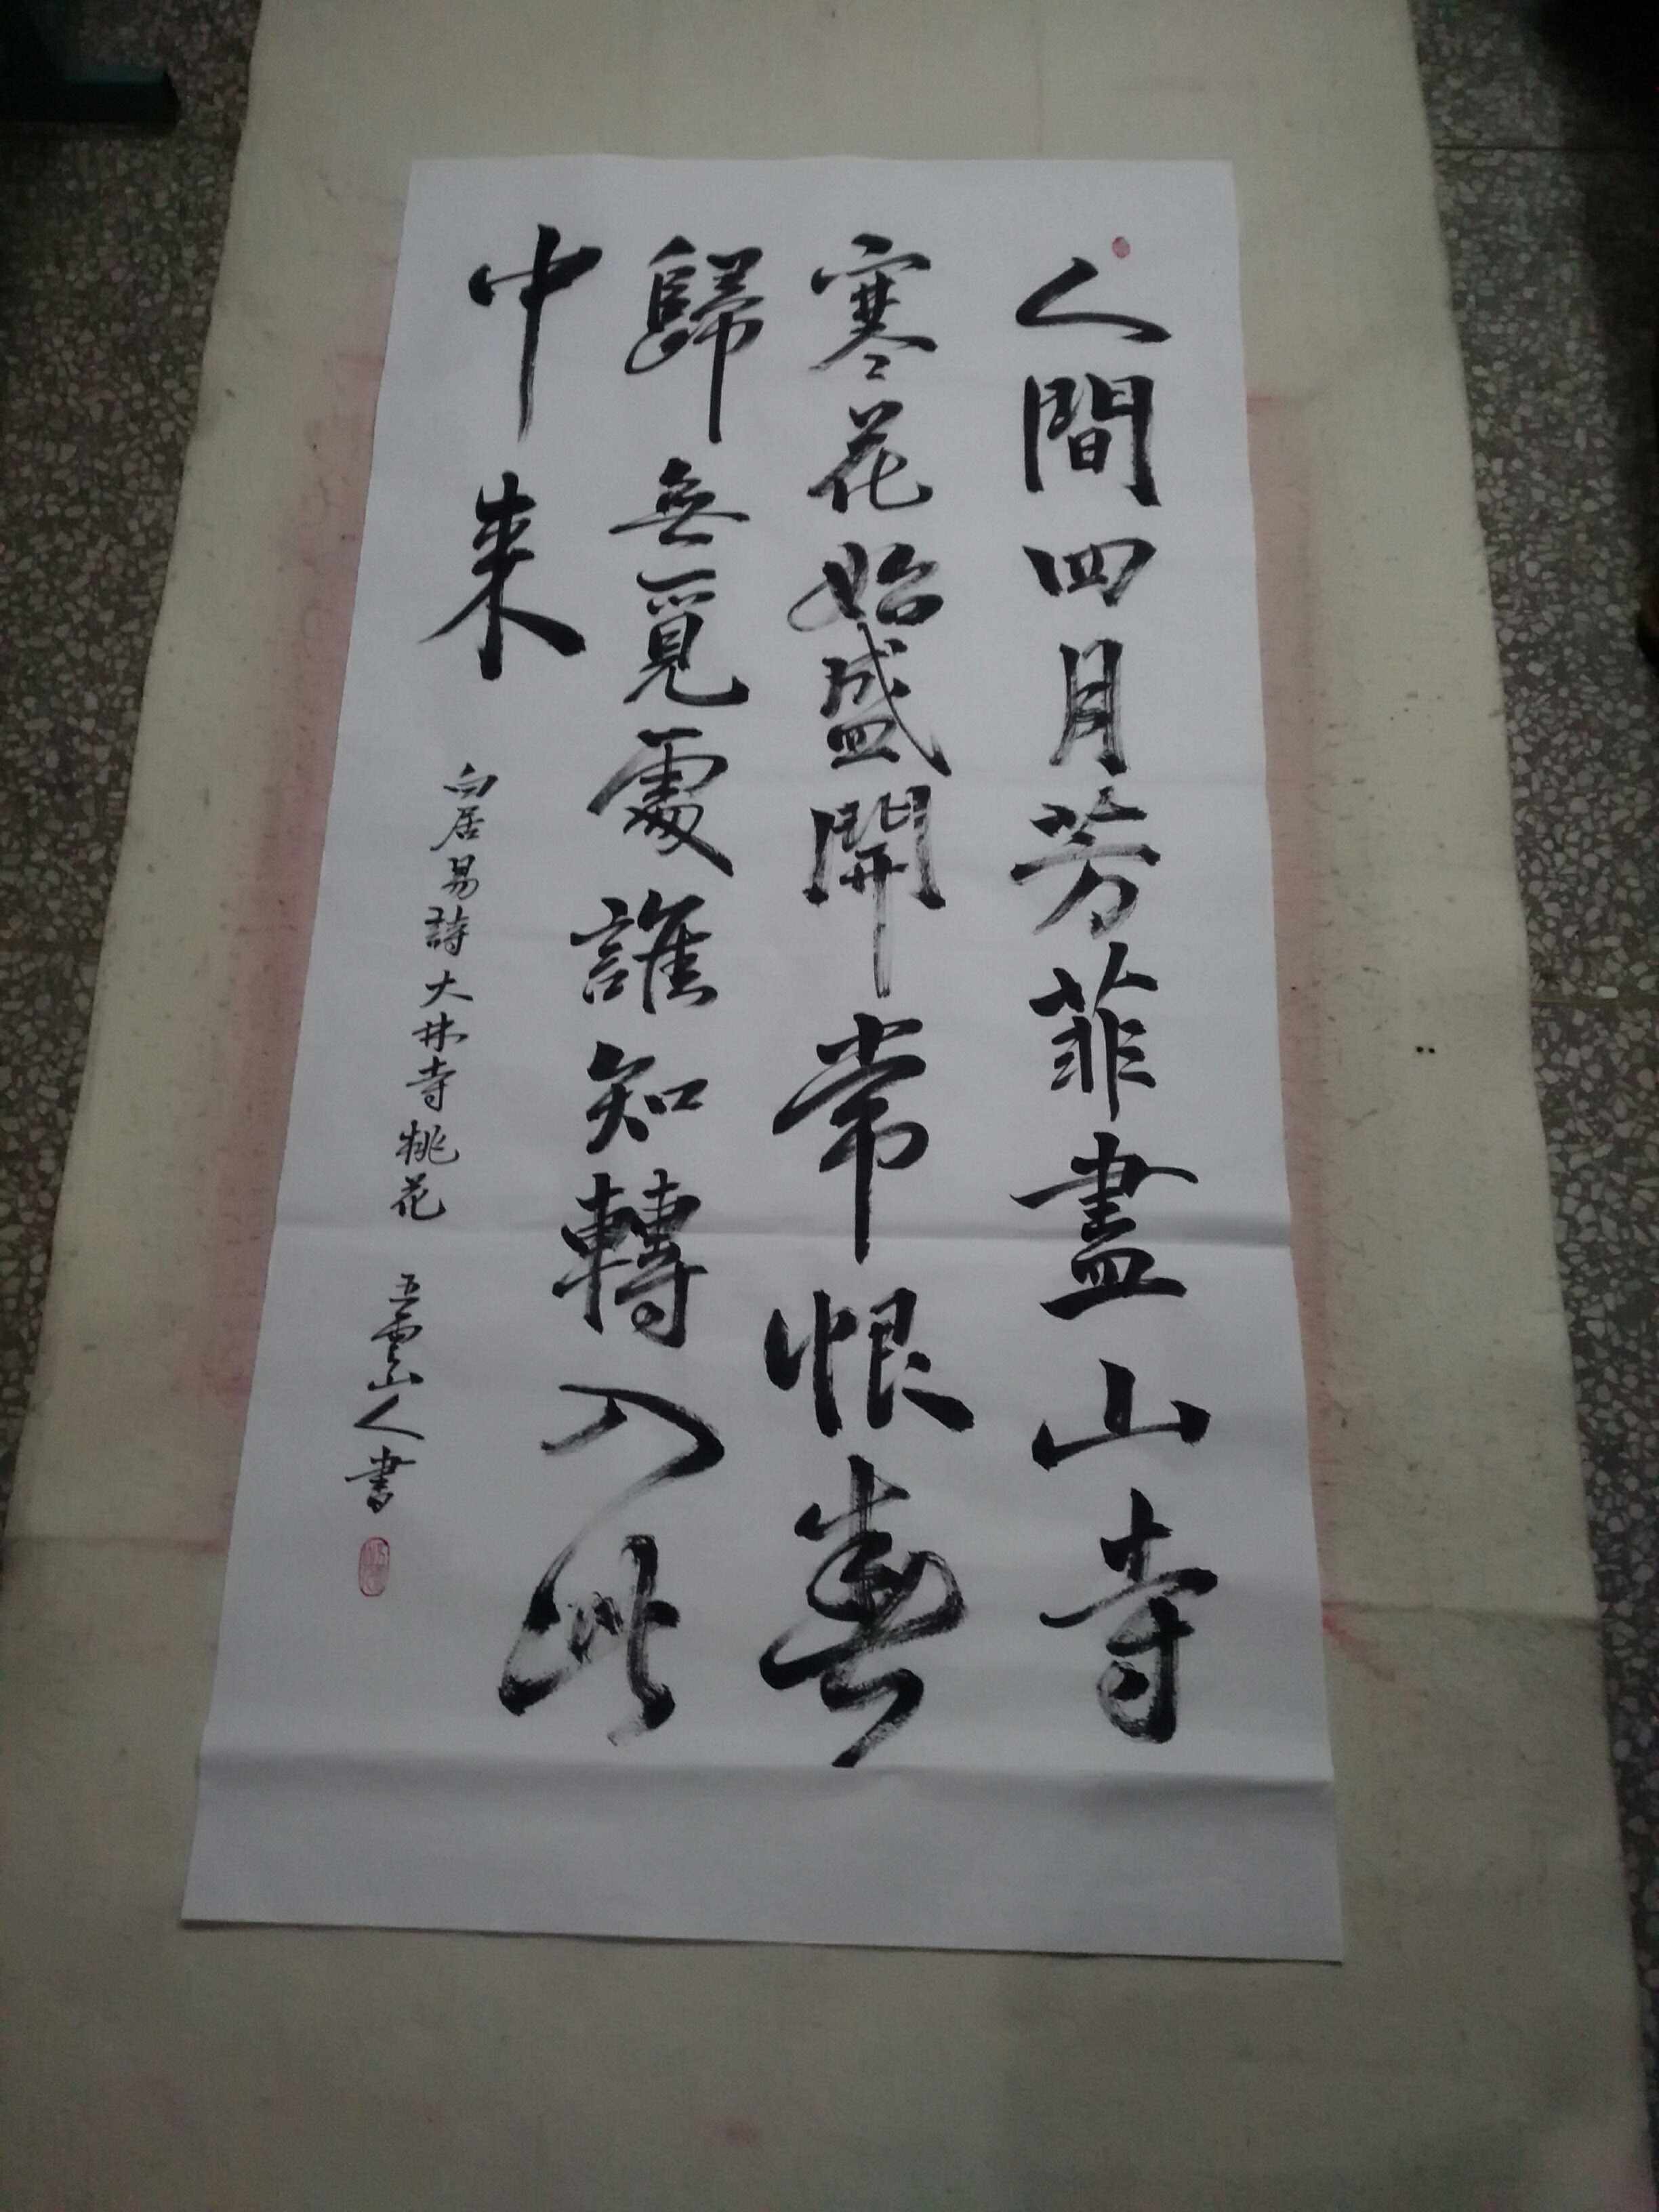 人間四月芳菲盡山寺
寒花始盛開常恨春
歸無覓處誰知轉入此
中来
白居易詩大林寺桃花
五雲山人書